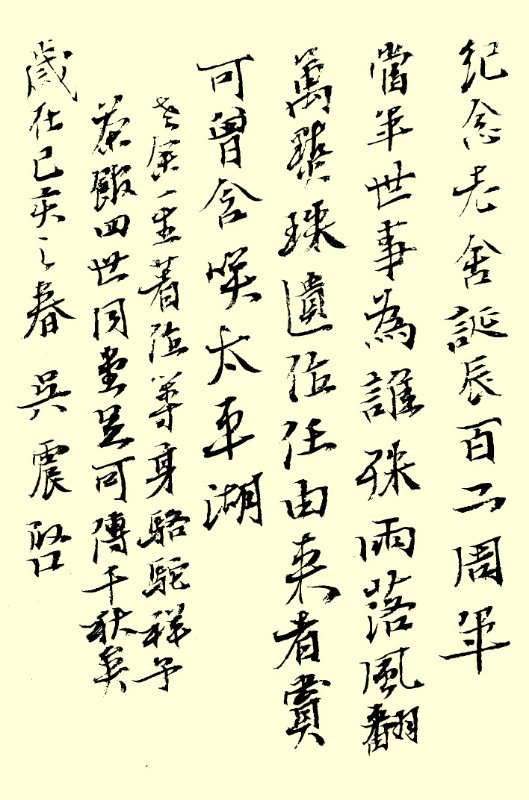 紀念老舍誕辰百二周年
當年世事為誰殊雨落風翻
萬珠遺作任由來者賞
可曾含笑太平湖
老舍一生著作等身駱駝祥子
茶館四世同堂足可傳千秋矣
歲在己亥之春 吳震啓